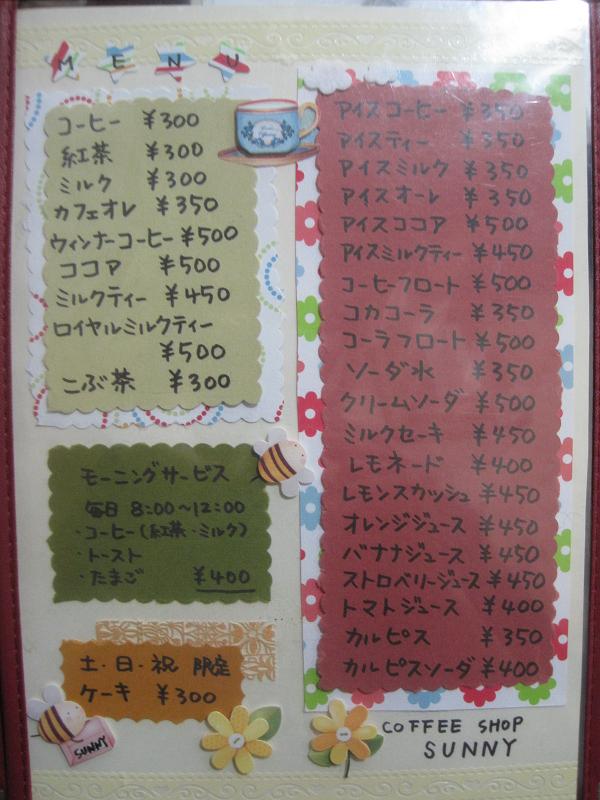 MENU
コーヒー ¥300
紅茶 ¥300
ミルク ¥300
カフェオレ ¥350
ウィンナーコーヒー ¥500
ココア ¥500
ミルクティー ¥450
ロイヤルミルクティー
¥500
こぶ茶 ¥300
モーニングサービス
毎日 8:00~12:00
・コーヒー(紅茶・ミルク)
・トースト
・たまご ¥400
土・日・祝 限定
ケーキ ¥300
SUNNY
アイスコーヒー ¥350
アイスティー ¥350
アイスミルク ¥350
アイスオーレ ¥350
アイスココア ¥500
アイスミルクティー ¥450
コーヒーフロート ¥500
コカコーラ ¥350
コーラフロート ¥500
ソーダ水 ¥350
クリームソーダ ¥500
ミルクセーキ ¥450
レモネード ¥400
レモンスカッシュ ¥450
オレンジジュース ¥450
バナナジュース ¥450
ストロベリージュース ¥450
トマトジュース ¥400
カルピス ¥350
カルピスソーダ ¥400
COFFEE SHOP
SUNNY